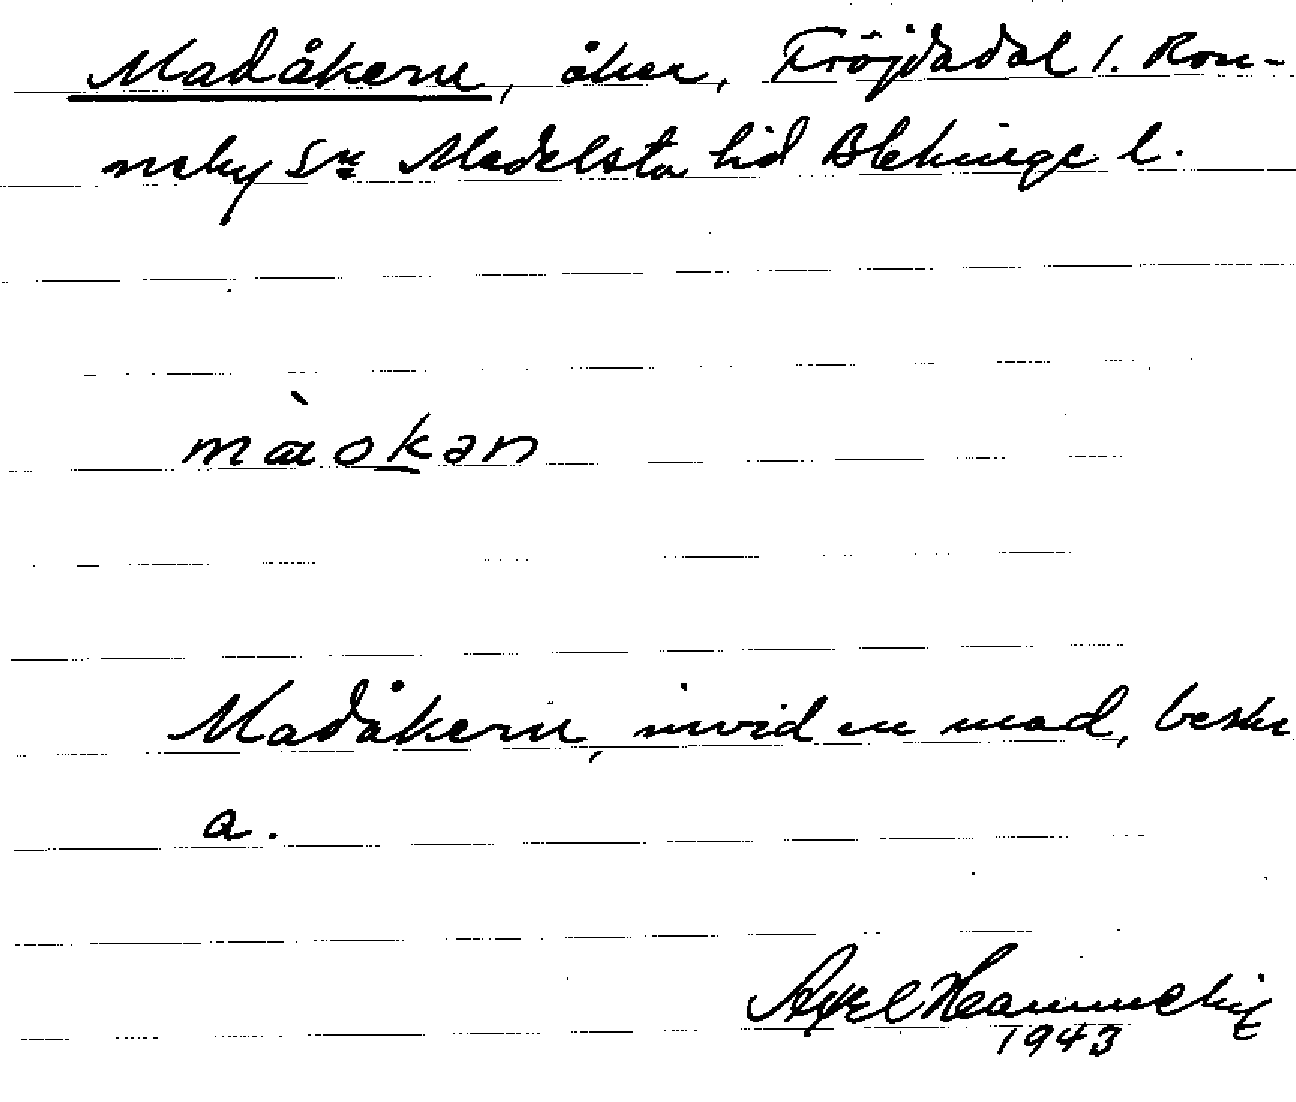 Madåkern, åker, Fröjdadal 1. Ron-
neby Sn Medelsta hd Blekinge l.
màokan
Madåkern, invid en mad, beskr
a.
Axel
1943